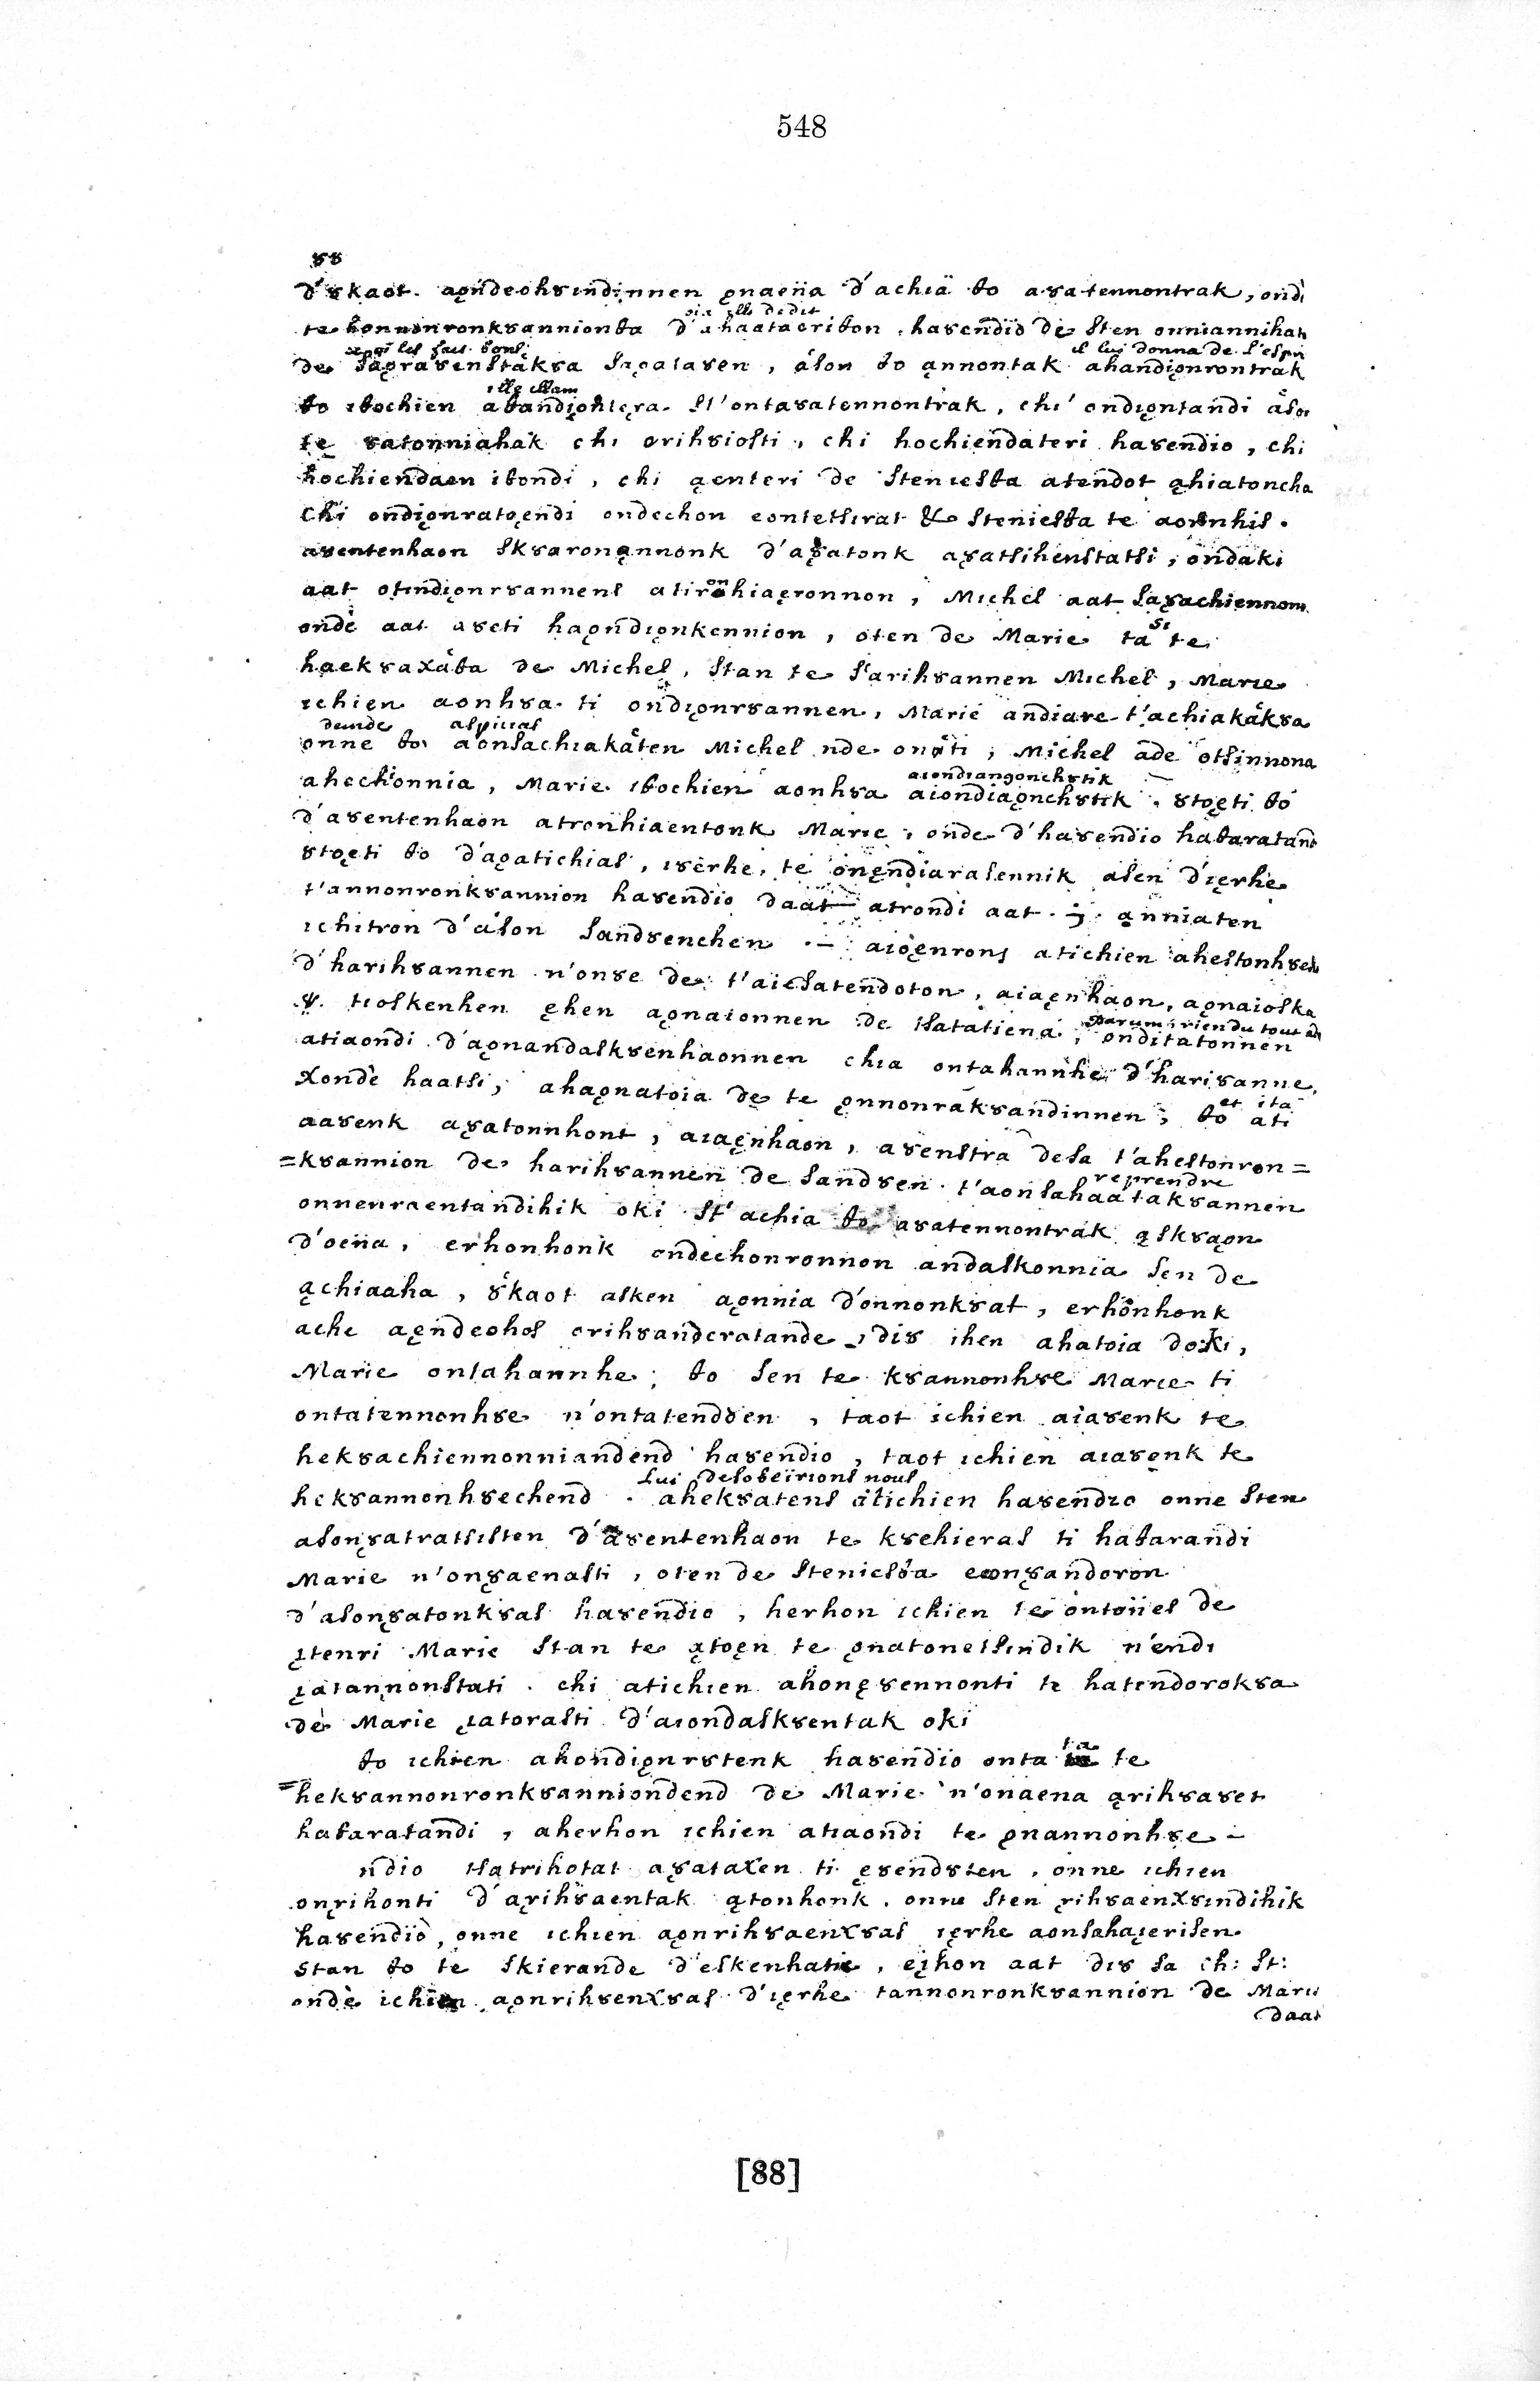 548
88
d'8kaot. aȩndeohȣindinnen ȩnaena d'achia ɵo aȣatennontrak, ondi
sic ille dedit
te honnonronkȣannionɵa d'ahaataeriɵon, haȣendio de sten onniannihati
il lui donna de l'espri
de saȩraȣenstakȣa saȩataȣen, ason ɵo ąnnontak ahandiȩnrontrak
ille illam
ɵo iɵochien aɵandiȩnteȩra. st'ontaȣatennontrak, chi ondiȩntandi ason
te ȣatonniahak chi orihȣiosti, chi hochiendateri haȣendio, chi
hochiendaen iɵondi, chi ąenteri de steniesɵa atendot ąhiatoncha
chi ondiȩnratoȩndi ondechon eontetsirat & steniesɵa te aoȣnhis.
aȣentenhaon skȣaronąnnonk d'aȣatonk aȣatsihenstatsi, ondaki
on
aat otindiȩnrȣannens atironhiaȩronnon, Michel aat saȣachiennon
si
onde aat aȣeti haȩndiȩnkennion, oten de Marie ta te
haekȣaxaɵa de Michel, stan te s'arihȣannen Michel, Marie
ichien aonhȣa ti ondiȩnrȣannen, Marie andiare t'achiakakȣa
deinde aspicias
onne ɵo aonsachiakaten Michel nde onati, Michel ade otsinnona
aiondiangonchȣtik
ahechonnia, Marie iɵochien aonhȣa aiondiaȩnchȣtik. ȣtoȩti ɵo
d'aȣentenhaon atronhiaentonk Marie, onde d'haȣendio haɵaratandi
ȣtoȩti ɵo d'aȩatichias, iȣerhe, te onȩndiarasennik asen d'iȩrhe
t'annonronkȣannion haȣendio daat atrondi aat. j. ąnniaten
ichitron d'ason sandȣenchen. – aioȩnrons atichien ahestonhȣe
d'harihȣannen n'onȣe de t'aiesatendoton, aiaȩnhaon, aȩnaioska
parum; rien du tout
ψ. tioskenhen ȩhen aȩnaionnen de tsatatiena, onditatonnen
atiaondi d'aȩnandaskȣenhaonnen chia ontahannhe d'hariȣanne,
et ita
xonde haatsi, ahaȩnatoia de te ȩnnonrakȣandinnen; ɵo ati
aaȣenk aȣatonnhont, aiaȩnhaon, aȣenstra desa t'ahestonron=
reprendre
=kȣannion de harihȣannen de sandȣen. t'aonsahaatakȣannen
onnenraentandihik oki st'achia ɵo aȣatennontrak ąskȣaȩn
d'oena, erhonhonk ondechonronnon andaskonnia sen de
ąchiaaha, ȣkaot asken aȩnnia d'onnonkȣat, erhonhonk
ache aȩndeohos orihȣanderatande, diȣ ihen ahatoia doki,
Marie ontahannhe; ɵo sen te kȣannonhȣe Marie ti
ontatennonhȣe n'ontatendȣen, taot ichien aiaȣenk te
hekȣachiennonniandend haȣendio, taot ichien aiaȣenk te
lui desobeirions nous
hekȣannonhȣechend. ahekȣatens atichien haȣendio onne sten
asonȣatratsisten d'aȣentenhaon te kȣehieras ti haɵarandi
Marie n'onȣaenasti, oten de steniesɵa eonȣandoron
d'asonȣatonkȣas haȣendio, herhon ichien te ontoiies de
ȩtenri Marie stan te ątoȩn te ȩnatonetsindik n'endi
ȩatannonstati. chi atichien ahonȩȣennonti te hatendorokȣa
de Marie ȩatorasti d'aiondaskȣentak oki
ta
ɵo ichien ahondiȩnrȣtenk haȣendio onta te
=hekȣannonronkȣanniondend de Marie n'onaena ąrihȣaȣet
haɵaratandi, aherhon ichien atiaondi te ȩnannonhȣe –
ndio tsatrihotat aȣataxen ti ȩȣendȣten, onne ichien
onȩihonti d'ąrihȣaentak ątonhonk. onne sten ȩihȣaenxȣindihik
haȣendio, onne ichien aȩnrihȣaenxȣas iȩrhe aonsahaȩerisen
stan ɵo te skierande d'eskenhatie, eȩhon aat diȣ sa ch: st:
onde ichien aȩnrihȣenxȣas d'iȩrhe tannonronkȣannion de Marie
daat
[88]